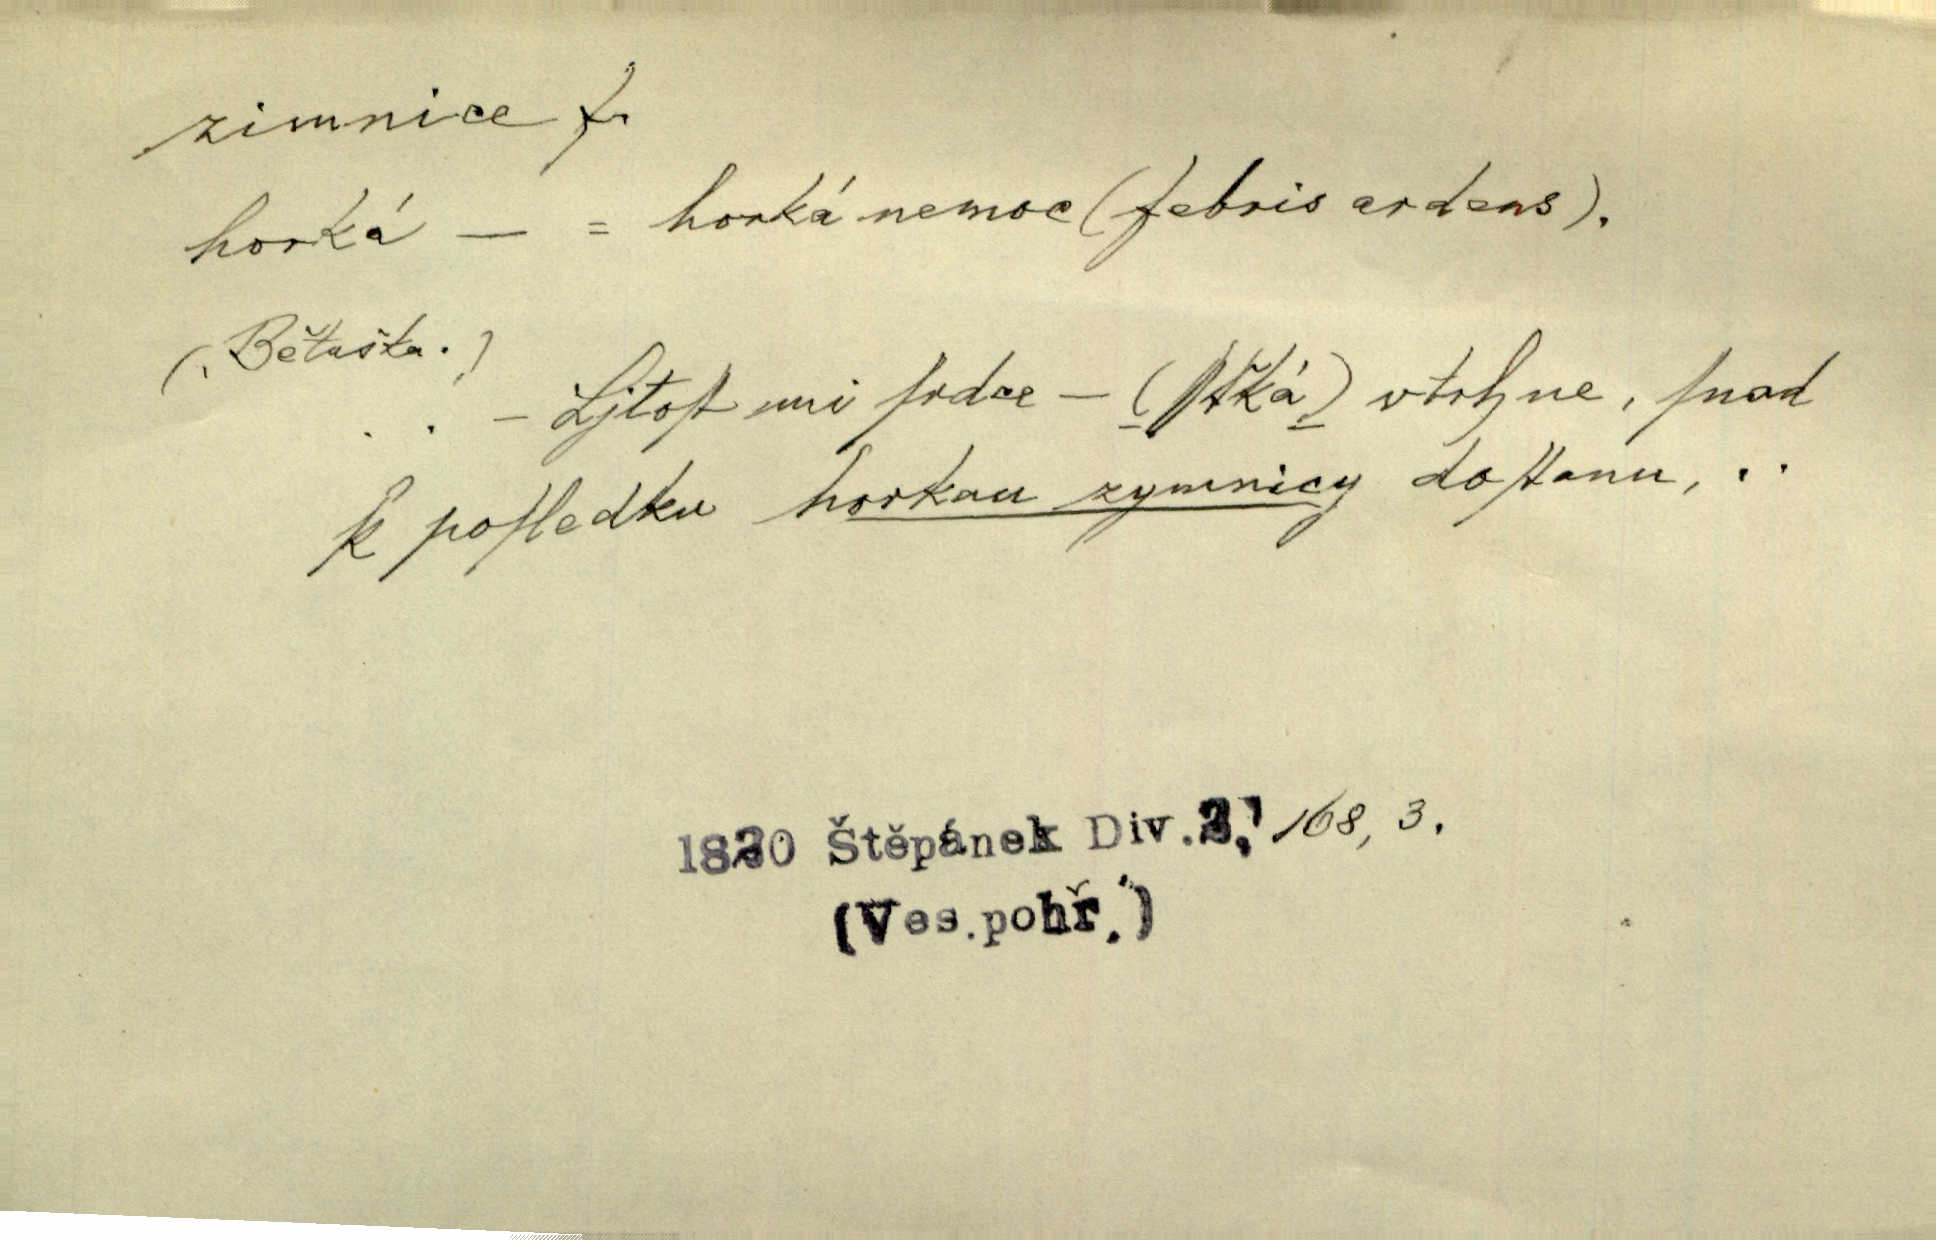 zimnice f.
horká — = horká nemoc (febris ardens).
(. Bětuška .)
. . – Ljtoſt mi ſrdce – (ſſtká) wtrhne, ſnad
k poſledku horkau zymnicy doſtanu, ..
1820 Štěpánek Div. 2, 168, 3.
(Ves. pohř.)